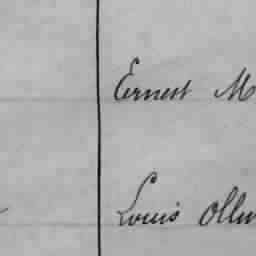 Ernest M
Louis Ollu